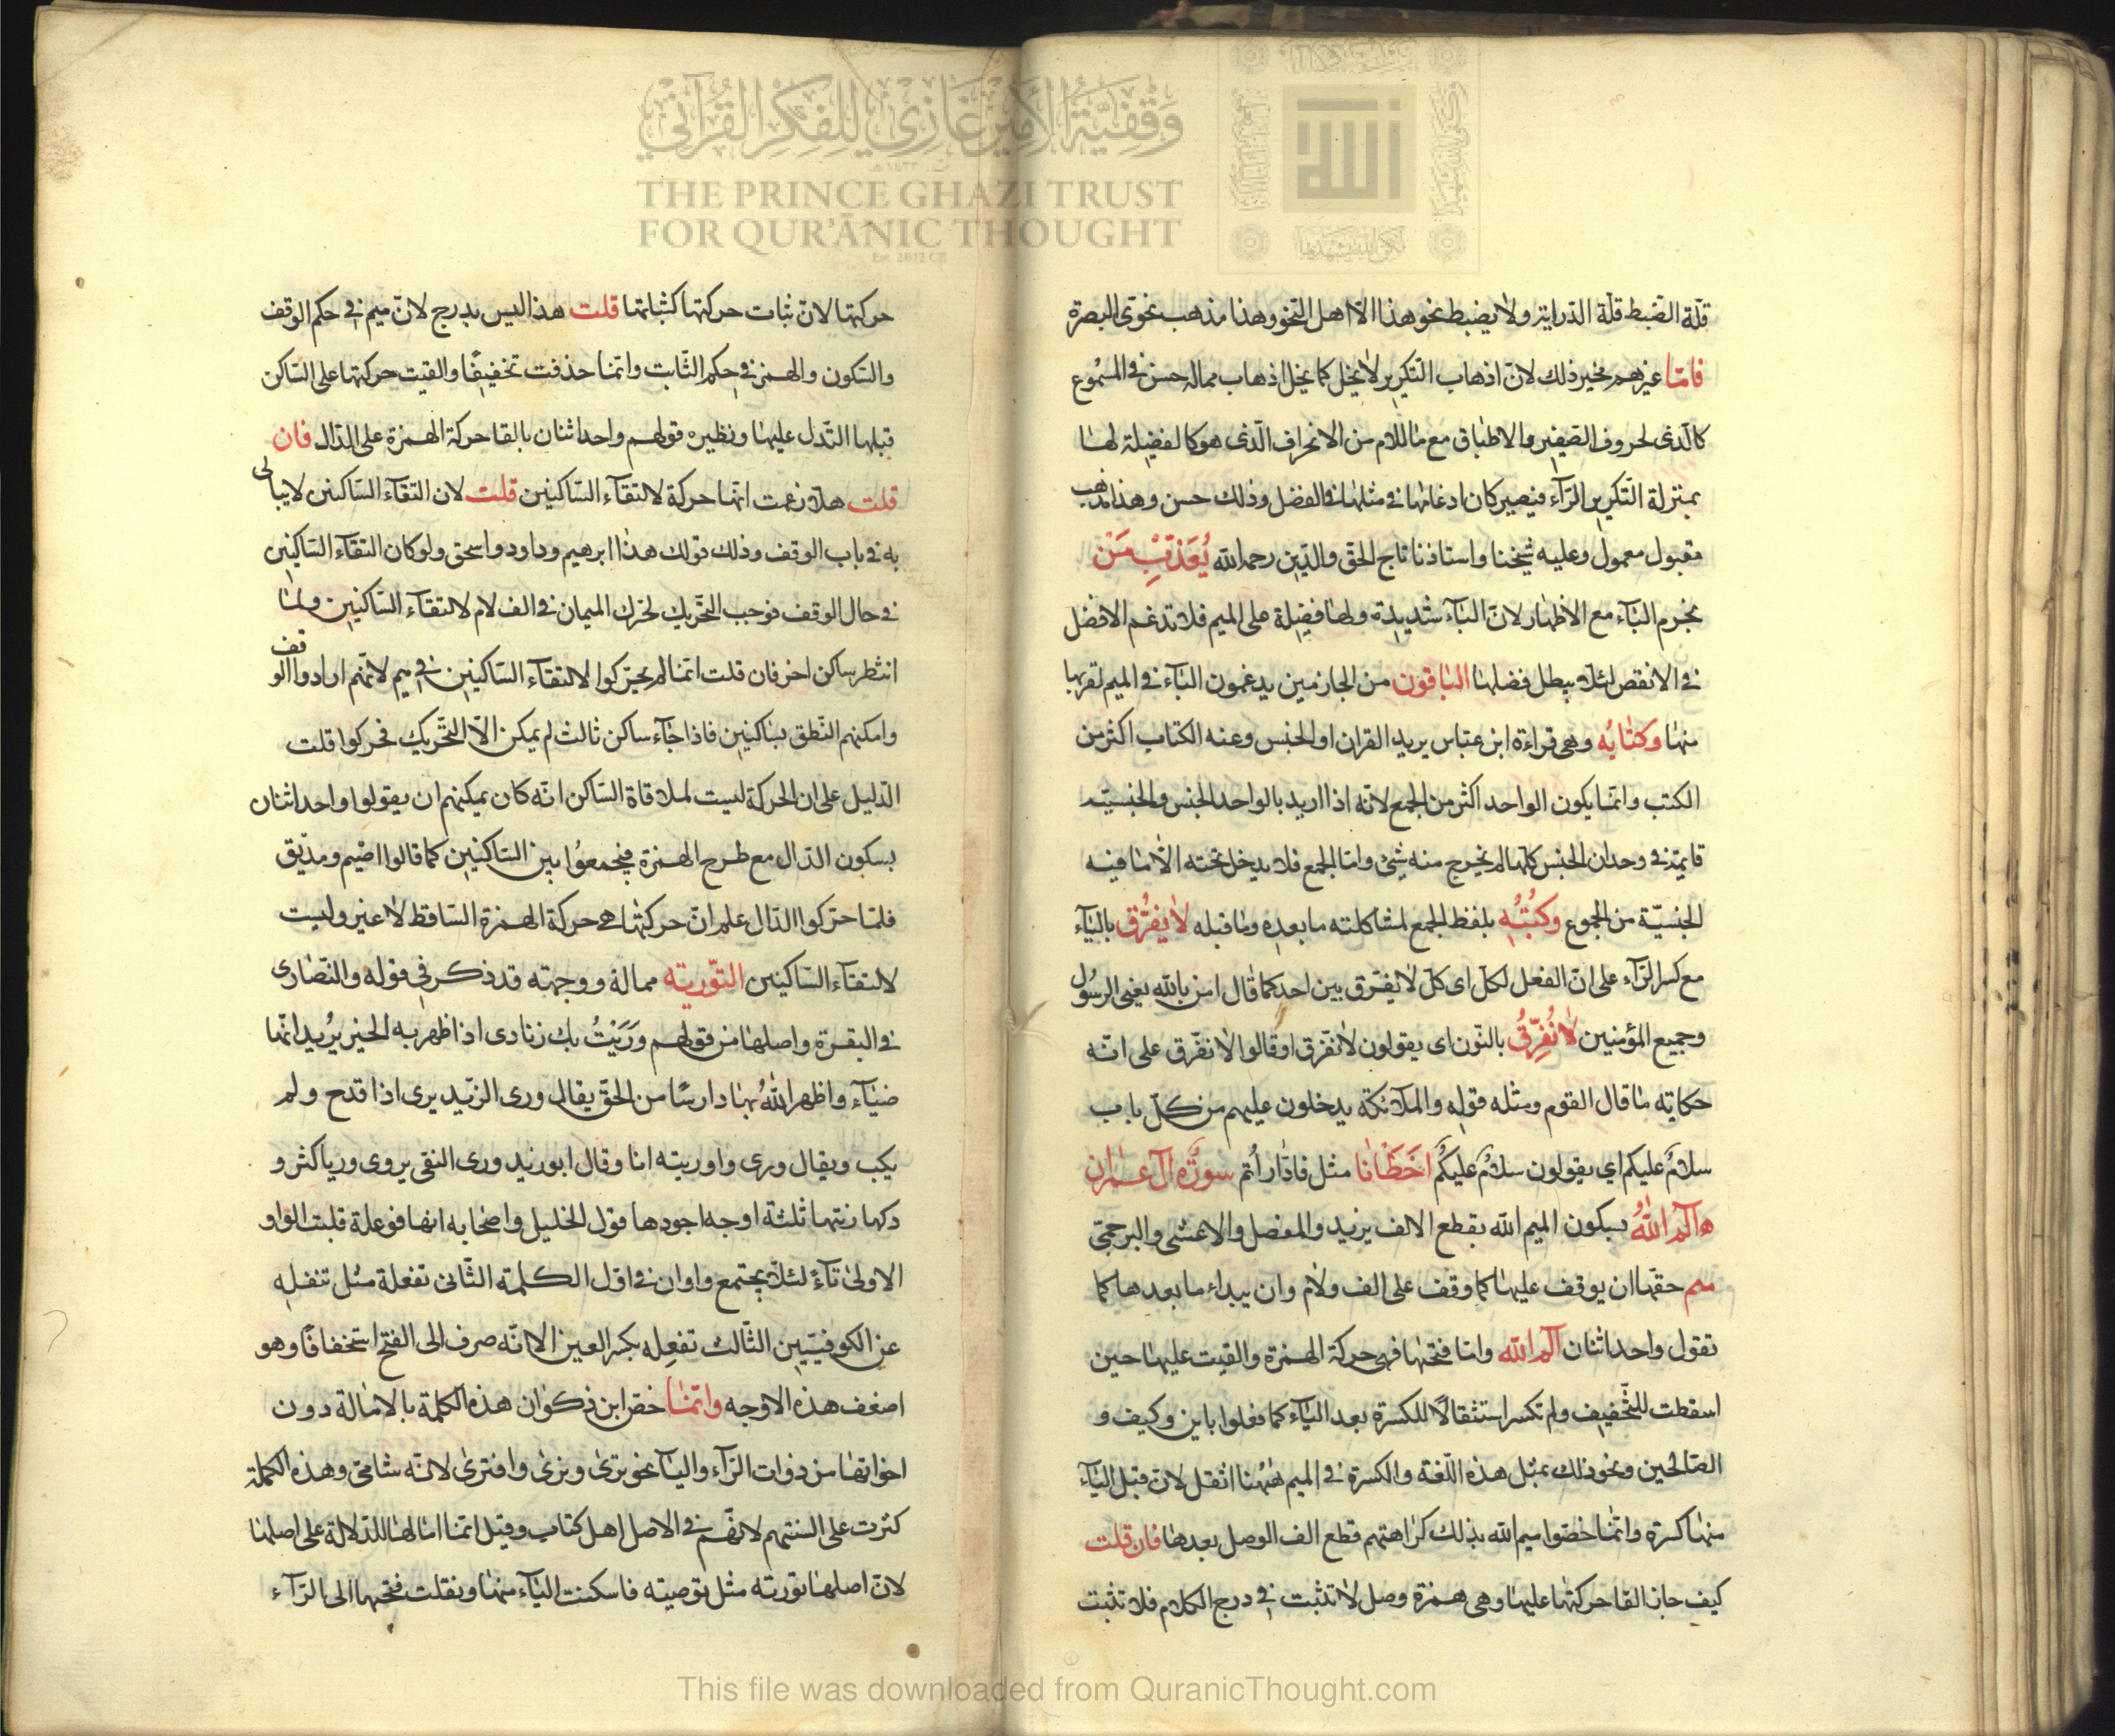 وقفية الأمير غازي للفكر القرآني
THE PRINCE GHAZI TRUST
FOR QUR'ĀNIC THOUGHT
Est. 2012 CE
الله
قلّة الضّبط قلّة الدّراية ولا يضبط نحو هذا الّا اهل النّحو وهذا مذهب نحوّى البصرة
فامّا غيرهم ذلك لانّ اذهاب التّكرير لا يخل كما يخل اذهاب حسن فى المسموع
كالّذى لحروف الصّفير والاطباق مع ما للام من الانحراف الّذى هو كالفضيلة لها
بمنزلة التّكرير الرّآء فيصير كان ادغامها فى مثلها فى الفضل وذلك حسن وهذا مذهب
مقبول معمول وعليه شيخنا واستاذنا تاج الحقّ والدّين رحمه الله يُعَذّبْ مَنْ
بجزم البآء مع الاظهار لانّ البآء شديدة ولها فضيلة على الميم فلا تدغم الافضل
فى الانقص لئلّا يبطل فضلها الباقون من الجازمين يدغمون البآء فى الميم لقربها
منها وكتابه وهى قراءة ابن عبّاس يريد القران او الجنس وعنه الكتاب اكثر من
الكتب وانّما يكون الواحد اكثر من الجمع لانّه اذا اريد بالواحد الجنس والجنسيّة
قايمة فى وحدان الجنس كلّها لم يخرج منه شئ وامّا الجمع فلا يدخل تحته الّا ما فيه
الجنسيّة من الجموع وكتُبُه بلفظ الجمع لمشاكلته ما بعده وما قبله لا يفرّق باليآء
مع كسر الرّآء على انّ الفعل لكلّ اى كلّ لا يفرّق بين احد كما قال امن بالله يعنى الرسول
وجميع المؤمنين لا نُفرّقُ بالنّون اى يقولون لا نفرّق او قالوا لا نفرّق على انّه
حكاية ما قال القوم ومثله قوله والملآئكة يدخلون عليهم من كلّ باب
سلامٌ عليكم اي يقولون سلامٌ عليكُم اخَطَانا مثل فادّاراتم سورة آل عمران
الٓمٓ اللهُ بسكون الميم الله بقطع الالف يزيد والمفضل والاعشى والبرجمى
ميم حقّها ان يوقف عليها كما وقف على الف ولام وان يبداء ما بعدها كما
تقول واحد اثنان الٓمٓ الله وامّا فتحها فهى حركة الهمزة والقيت عليها حين
اسقطت للتّخفيف ولم تكسر استثقالًا للكسرة بعد اليآء كما فعلوا باين وكيف و
الصّالحين ونحو ذلك بمثل هذه اللّغة والكسرة فى الميم ههُنا اثقل لانّ قبل اليآء
منها كسرة وانّما خصّوا ميم الله بذلك كراهتهم قطع الف الوصل بعدها فان قلت
كيف جاز القا حركتها عليها وهى همزة وصل لا تثبت فى درج الكلام فلا تثبت
حركتها لانّ ثبات حركتها كثباتها قلت هذا ليس بدرج لانّ ميم فى حكم الوقف
والسّكون والهمز فى حكم الثّابت وانّما حذفت تخفيفًا والقيت حركتها على السّاكن
قبلها التدل عليها ونظيره قولهم واحد اثنان بالقا حركة الهمزة على الدّال فان
قلت هلّا زعمت انّها حركة لالتقآء السّاكنين قلت لان التقآء السّاكنين لا يبالى
به فى باب الوقف وذلك قولك هذا ابرهيم وداود واسحق ولو كان التقآء السّاكنين
فى حال الوقف يوجب التّحريك لحرّك الميمان فى الف لام لالتقآء السّاكنين ولمّا
انتظر ساكن اخر فان قلت انّما لم يحرّكوا لالتقآء السّاكنين فى ميم لانّهم ارادوا الوقف
وامكنهم النّطق بساكنين فاذا جآء ساكن ثالث لم يمكن الّا التّحريك فحركوا قلت
الدّليل على ان الحركة ليست لملاقاة السّاكن انّه كان يمكنهم ان يقولوا واحد اثنان
بسكون الدّال مع طرح الهمزة فيجمعوُا بين السّاكنين كما قالوا اصيم ومديق
فلمّا حرّكوا الدّال علم انّ حركتها هى حركة الهمزة السّاقط لا غير وليست
لالتقآء السّاكنين التّورية ممالة ووجهته قد ذكر فى قوله والنّصارى
فى البقرة واصلها من قولهم وَرَيْتُ بك زنادى اذا ظهر به الخير يُريد انّها
ضيآء واظهر اللهُ بها دارسًا من الحقّ يقال ورى الزّيد يرى اذا قدح ولم
يكب ويقال ورى واوريته انا وقال ابو زيد ورى النقى يروى وريا كثر و
ذكها زنتها ثلثة اوجه اجودها قول الخليل واصحابه انها فوعلة قلبت الواو
الاولى تآءً لئلّا يجتمع واوان فى اوّل الكلمة الثّانى تفعلة مثل تنفله
عن الكوفيّيين الثّالث تفعِله بكسر العين الا انّه صرف الى الفتح استخفافًا وهو
اضعف هذه الاوجه وانّما خصّ ابن ذكوان هذه الكلمة بالامالة دون
اخواتها من ذوات الرّآء واليآء نحو ترى ونرى وافترى لانّه شامىّ وهذه الكلمة
كثرت على السنتهم لانّهم فى الاصل اهل كتاب وقيل انّما امالها للدّلالة على اصلها
لانّ اصلها تورية مثل توصية فاسكنت اليآء منها ونقلت فتحها الى الرّآء
This file was downloaded from QuranicThought.com